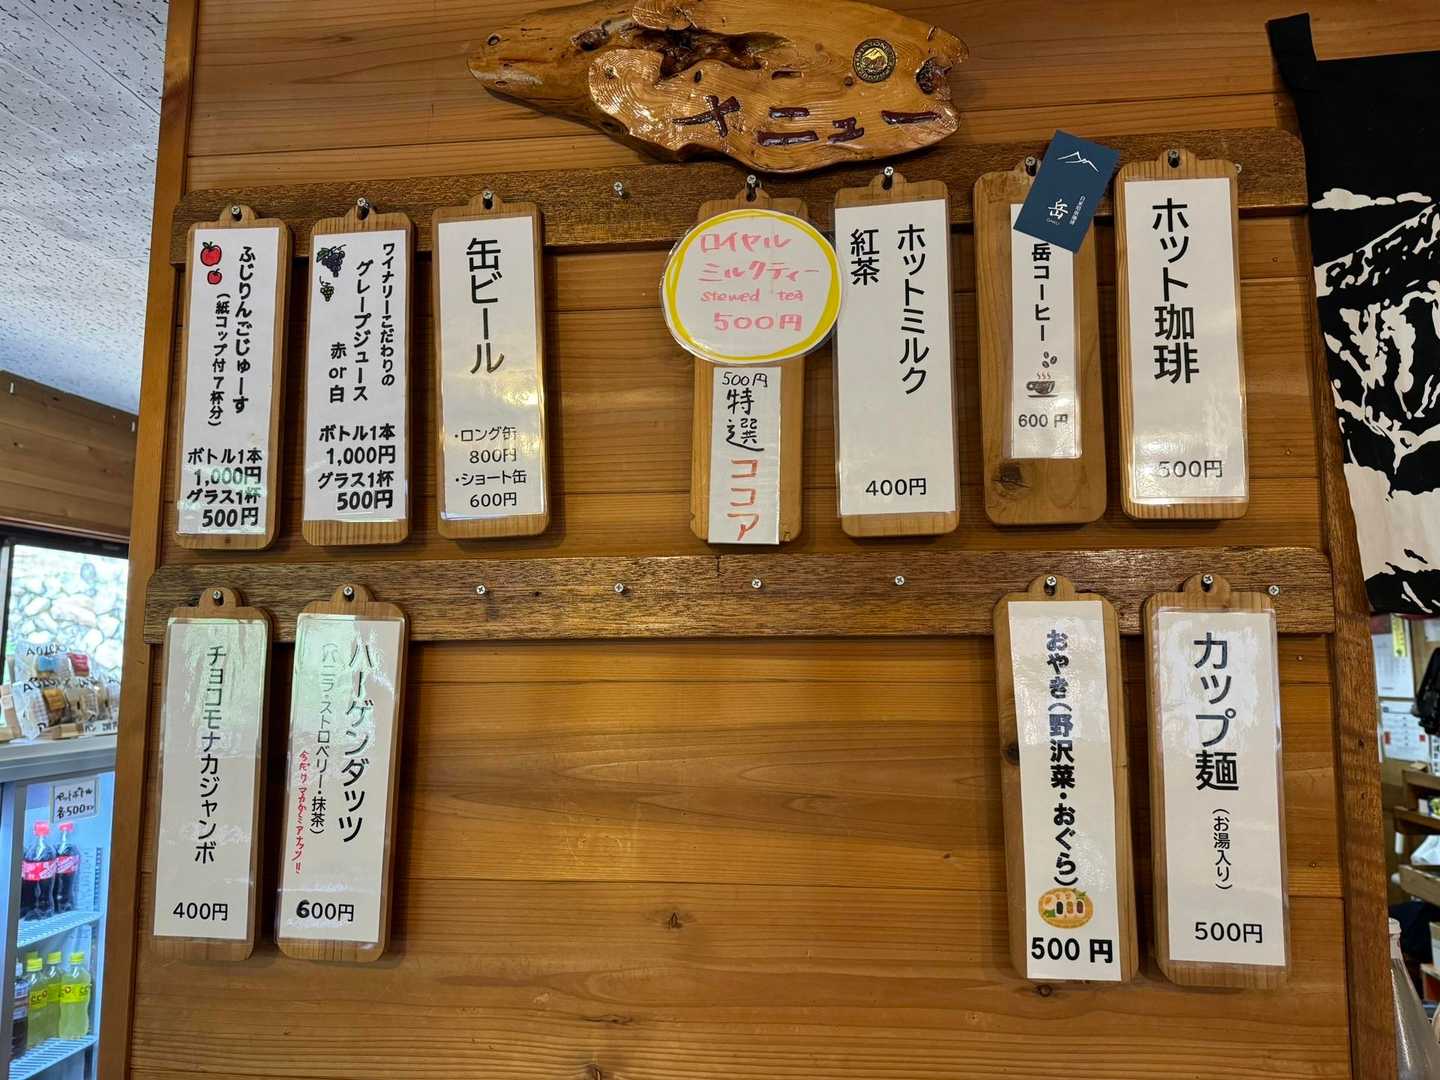 メニュー
ホット珈琲
500円
岳
岳コーヒー
600円
ホットミルク
紅茶
400円
ロイヤル
ミルクティー
stewed tea
500円
500円
特選ココア
缶ビール
・ロング缶
800円
・ショート缶
600円
ワイナリーこだわりの
グレープジュース
赤or白
ボトル1本
1,000円
グラス1杯
500円
ふじりんごじゅーす
(紙コップ付7杯分)
ボトル1本
1,000円
グラス1杯
500円
カップ麺
(お湯入り)
500円
おやき(野沢菜・おぐら)
500円
ハーゲンダッツ
(バニラ・ストロベリー・抹茶)
今だけマカダミアナッツ!!
600円
チョコモナカジャンボ
400円
ペットボトル
各500円